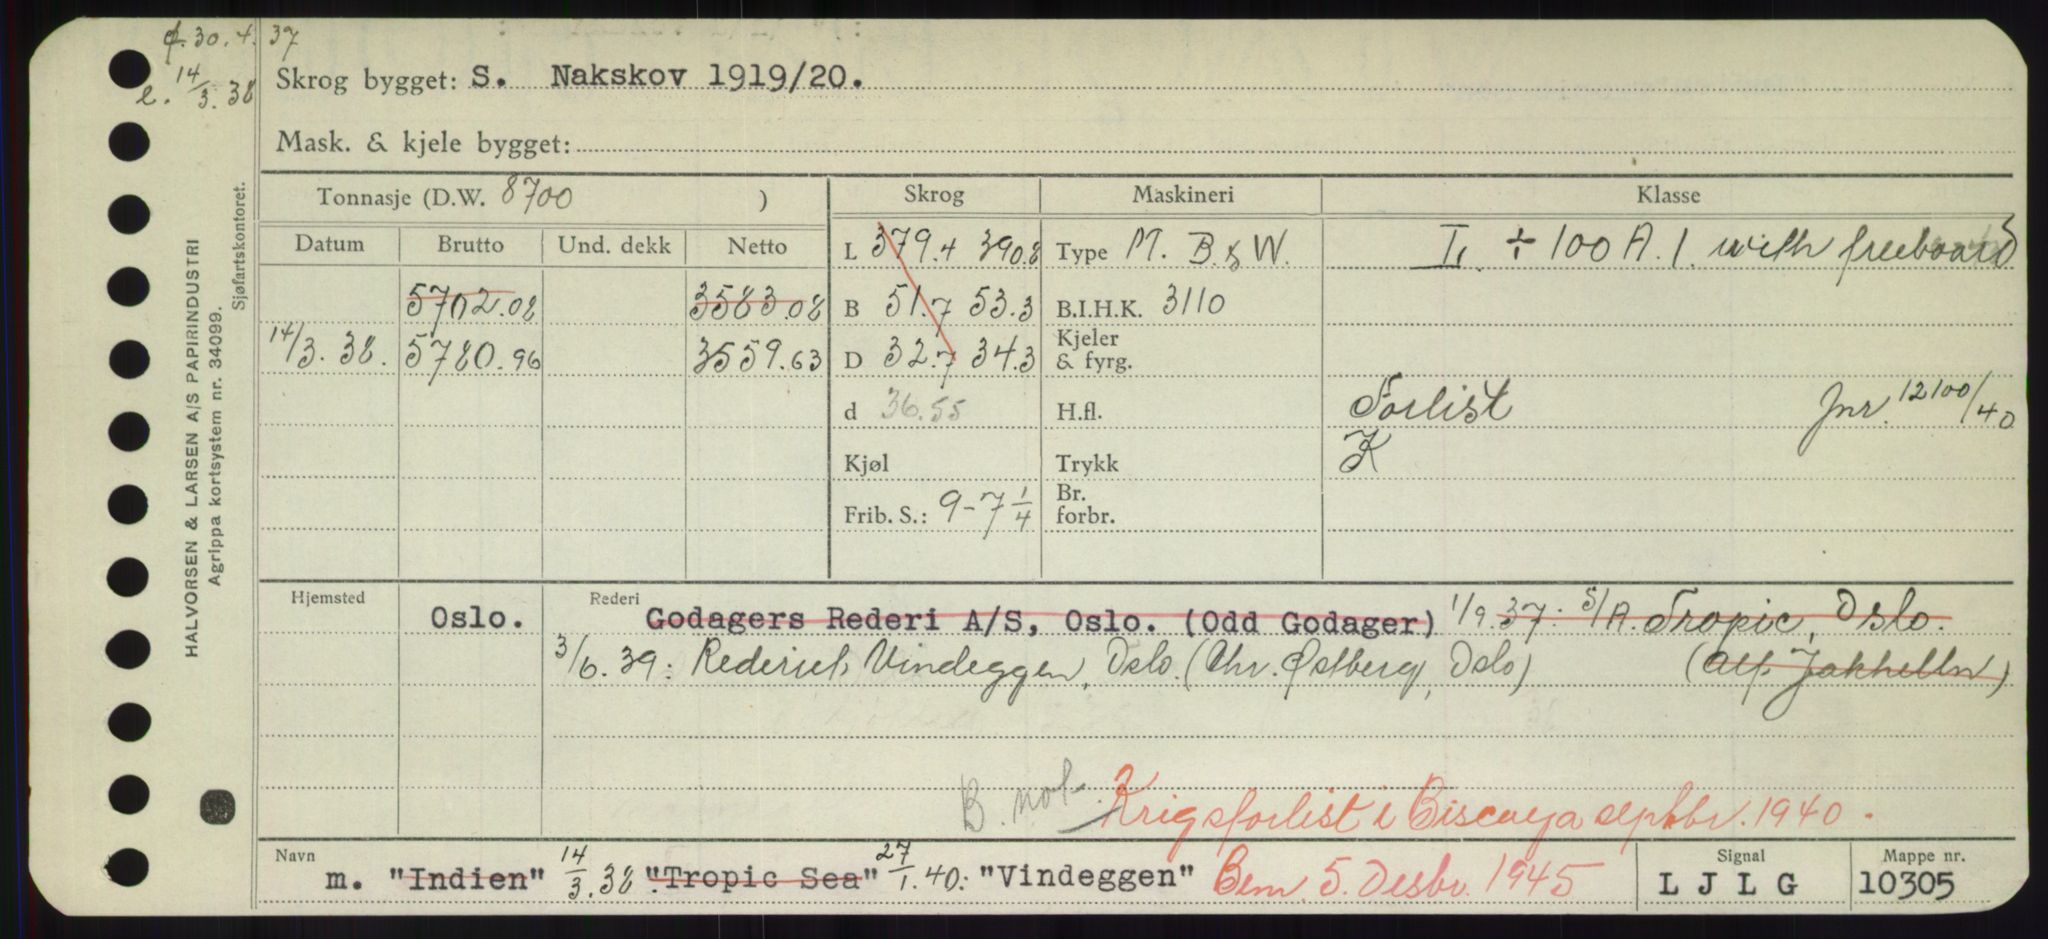 f. 30.4. 37
e. 14/3. 38
Skrog bygget: S. Nakskov 1919/20.
Mask. & kjele bygget:
HALVORSEN & LARSEN A/S PAPIRINDUSTRI
Agrippa kortsystem nr. 34099.
Sjøfartskontoret.
Tonnasje (D.W. 8700 ) Skrog Maskineri Klasse
Datum Brutto Und. dekk Netto L 379.4 390.8 Type M. B & W. L. ÷ 100 A. 1. with freeboard
5702.08 3583.08 B 51.7 53.3 B.I.H.K. 3110
14/3. 38. 5780.96 3559.63 D 32.7 34.3 Kjeler & fyrg.
d 36.55 H.fl. Forlist Jnr. 12100/40
Kjøl Trykk K
Frib. S.: 9-7 1/4 Br. forbr.
Hjemsted Oslo. Rederi Godagers Rederi A/S, Oslo. (Odd Godager) 1/9. 37: S/A. Tropic, Oslo.
3/6. 39: Rederiet Vindeggen, Oslo. (Chr. Østberg, Oslo) (Alf Jakhelln)
B. not. Krigsforlist i Biscaya septbr. 1940.
Navn m. "Indien" 14/3. 38 "Tropic Sea" 27/1. 40: "Vindeggen" Bem. 5. Desbr. 1945 Signal L J L G Mappe nr. 10305